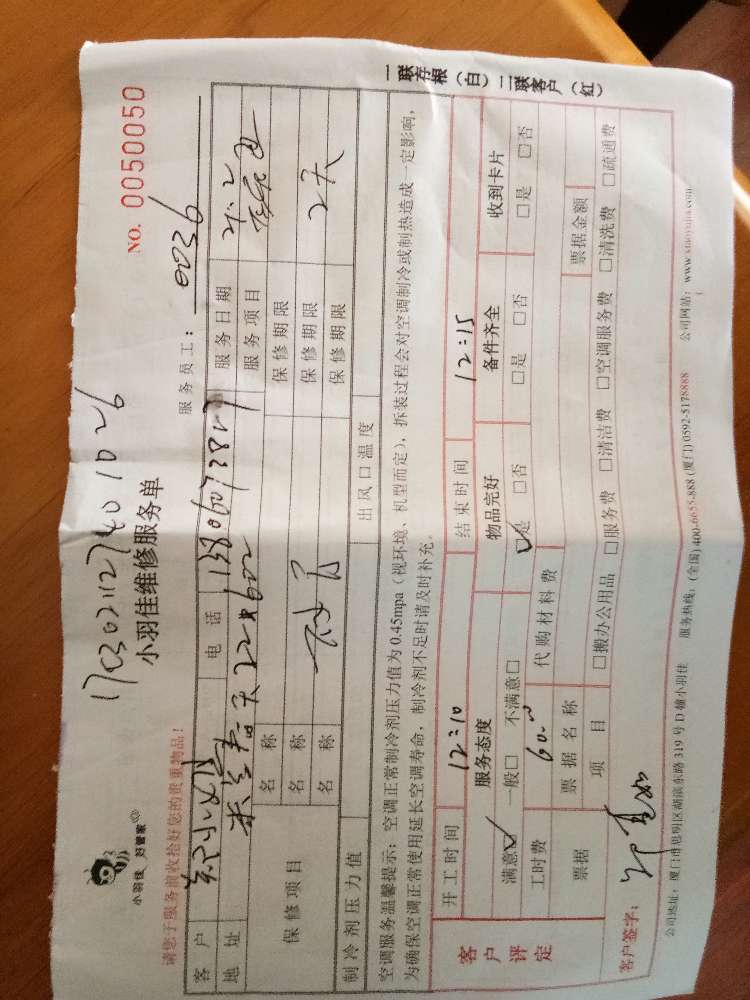 一联存根（白）二联客户（红）
NO. 0050050
小羽佳 好管家
小羽佳维修服务单
请您于服务前收拾好您的贵重物品！
服务员工： 0036
客户 电话 服务日期 21.2
地址 服务项目
保修项目 名称 保修期限
名称 保修期限 2天
名称 保修期限
制冷剂压力值 出风口温度
空调服务温馨提示：空调正常制冷剂压力值为 0.45mpa（视环境、机型而定），拆装过程会对空调制冷或制热造成一定影响，
为确保空调正常使用延长空调寿命，制冷剂不足时请及时补充。
客户评定
开工时间 12:10 结束时间 12:15
服务态度 物品完好 备件齐全 收到卡片
满意☑ 一般□ 不满意□ ☑是 □否 □是 □否 □是 □否
工时费 60.00 代购材料费
票据 票据名称 票据金额
项目 □搬办公用品 □服务费 □清洁费 □空调服务费 □清洗费 □疏通费
客户签字：
公司地址：厦门市思明区湖滨东路 319 号 D 幢小羽佳 服务热线：(全国) 400-6655-888 (厦门) 0592-5178888 公司网站：www.xiaoyujia.com